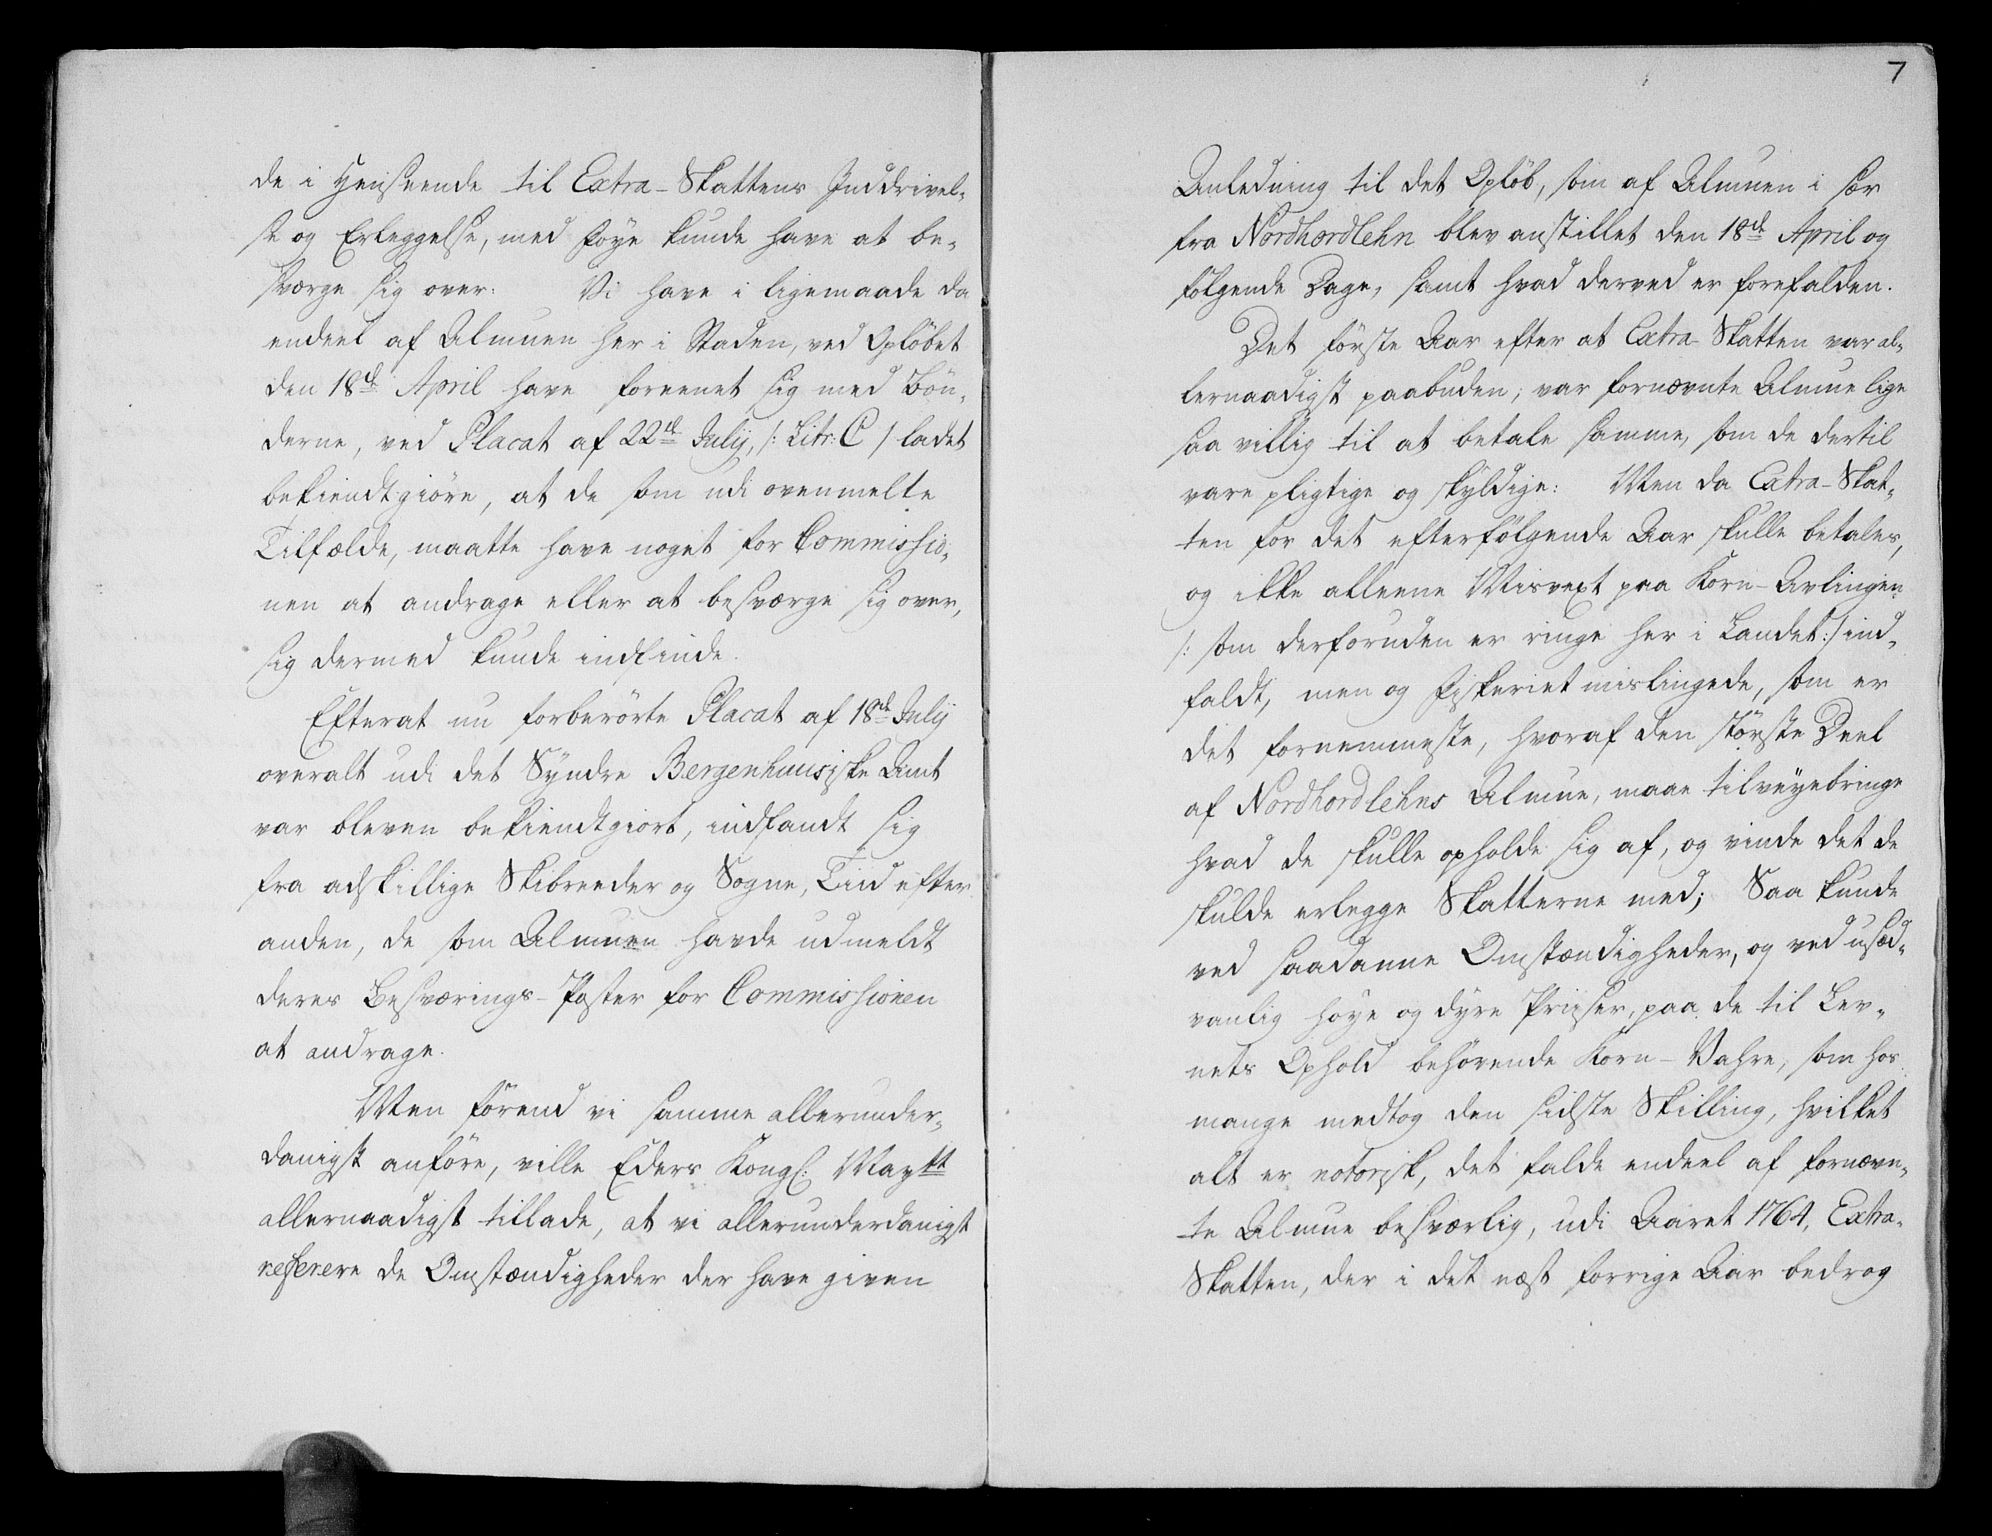 de i Henseende til Extra-Skattens Inddrivel-
se og Erleggelse, med Føye kunde have at be-
sværge sig over. Vi have i ligemaade da
endeel af Almuen her i Staden, ved Opløbet
den 18de April have foreenet sig med Bøn-
derne, ved Placat af 22de July, /: Litr: C / ladet
bekiendtgiøre, at de som udi ovenmelte
Tilfælde, maatte have noget for Commissio-
nen at andrage eller at besværge sig over,
sig dermed kunde indfinde.
Efterat nu forberørte Placat af 18de July
overalt udi det Syndre Bergenhuusiske Amt
var bleven bekiendtgiort, indfandt sig
fra adskillige Skibreeder og Sogne, Tiid efter
anden, de som Almuen havde udmeldt
deres Besværings-Poster for Commissionen
at andrage.
Men førend vi samme allerunder-
danigst anføre, ville Eders Kongl: Maytt
allernaadigst tillade, at vi allerunderdanigst
referere de Omstændigheder der have given
7
Anledning til det Opløb, som af Almuen i sær
fra Nordhordlehn blev anstillet den 18de April og
følgende Dage, samt hvad derved er forefalden.
Det første Aar efter at Extra-Skatten var al-
lernaadigst paabuden, var fornævnte Almue lige
saa villig til at betale samme, som de dertil
vare pligtige og skyldige: Men da Extra-Skat-
ten for det efterfølgende Aar skulle betales,
og ikke alleene Misvext paa Korn-Avlingen
/: som derforuden er ringe her i Landet:/ ind-
faldt, men og Fiskeriet mislingede, som er
det fornemmeste, hvoraf den største Deel
af Nordhordlehns Almue, maae tilveyebringe
hvad de skulle opholde sig af, og vinde det de
skulde erlegge Skatterne med; Saa kunde
ved saadanne Omstændigheder, og ved usæd-
vanlig høye og dyre Priiser, paa de til Lev-
nets Ophold behørende Korn-Vahre, som hos
mange medtog den sidste Skilling, hvilket
alt er notorisk, det falde endeel af fornævn-
te Almue besværlig, udi Aaret 1764, Extra-
Skatten, der i det næst forrige Aar bedrog